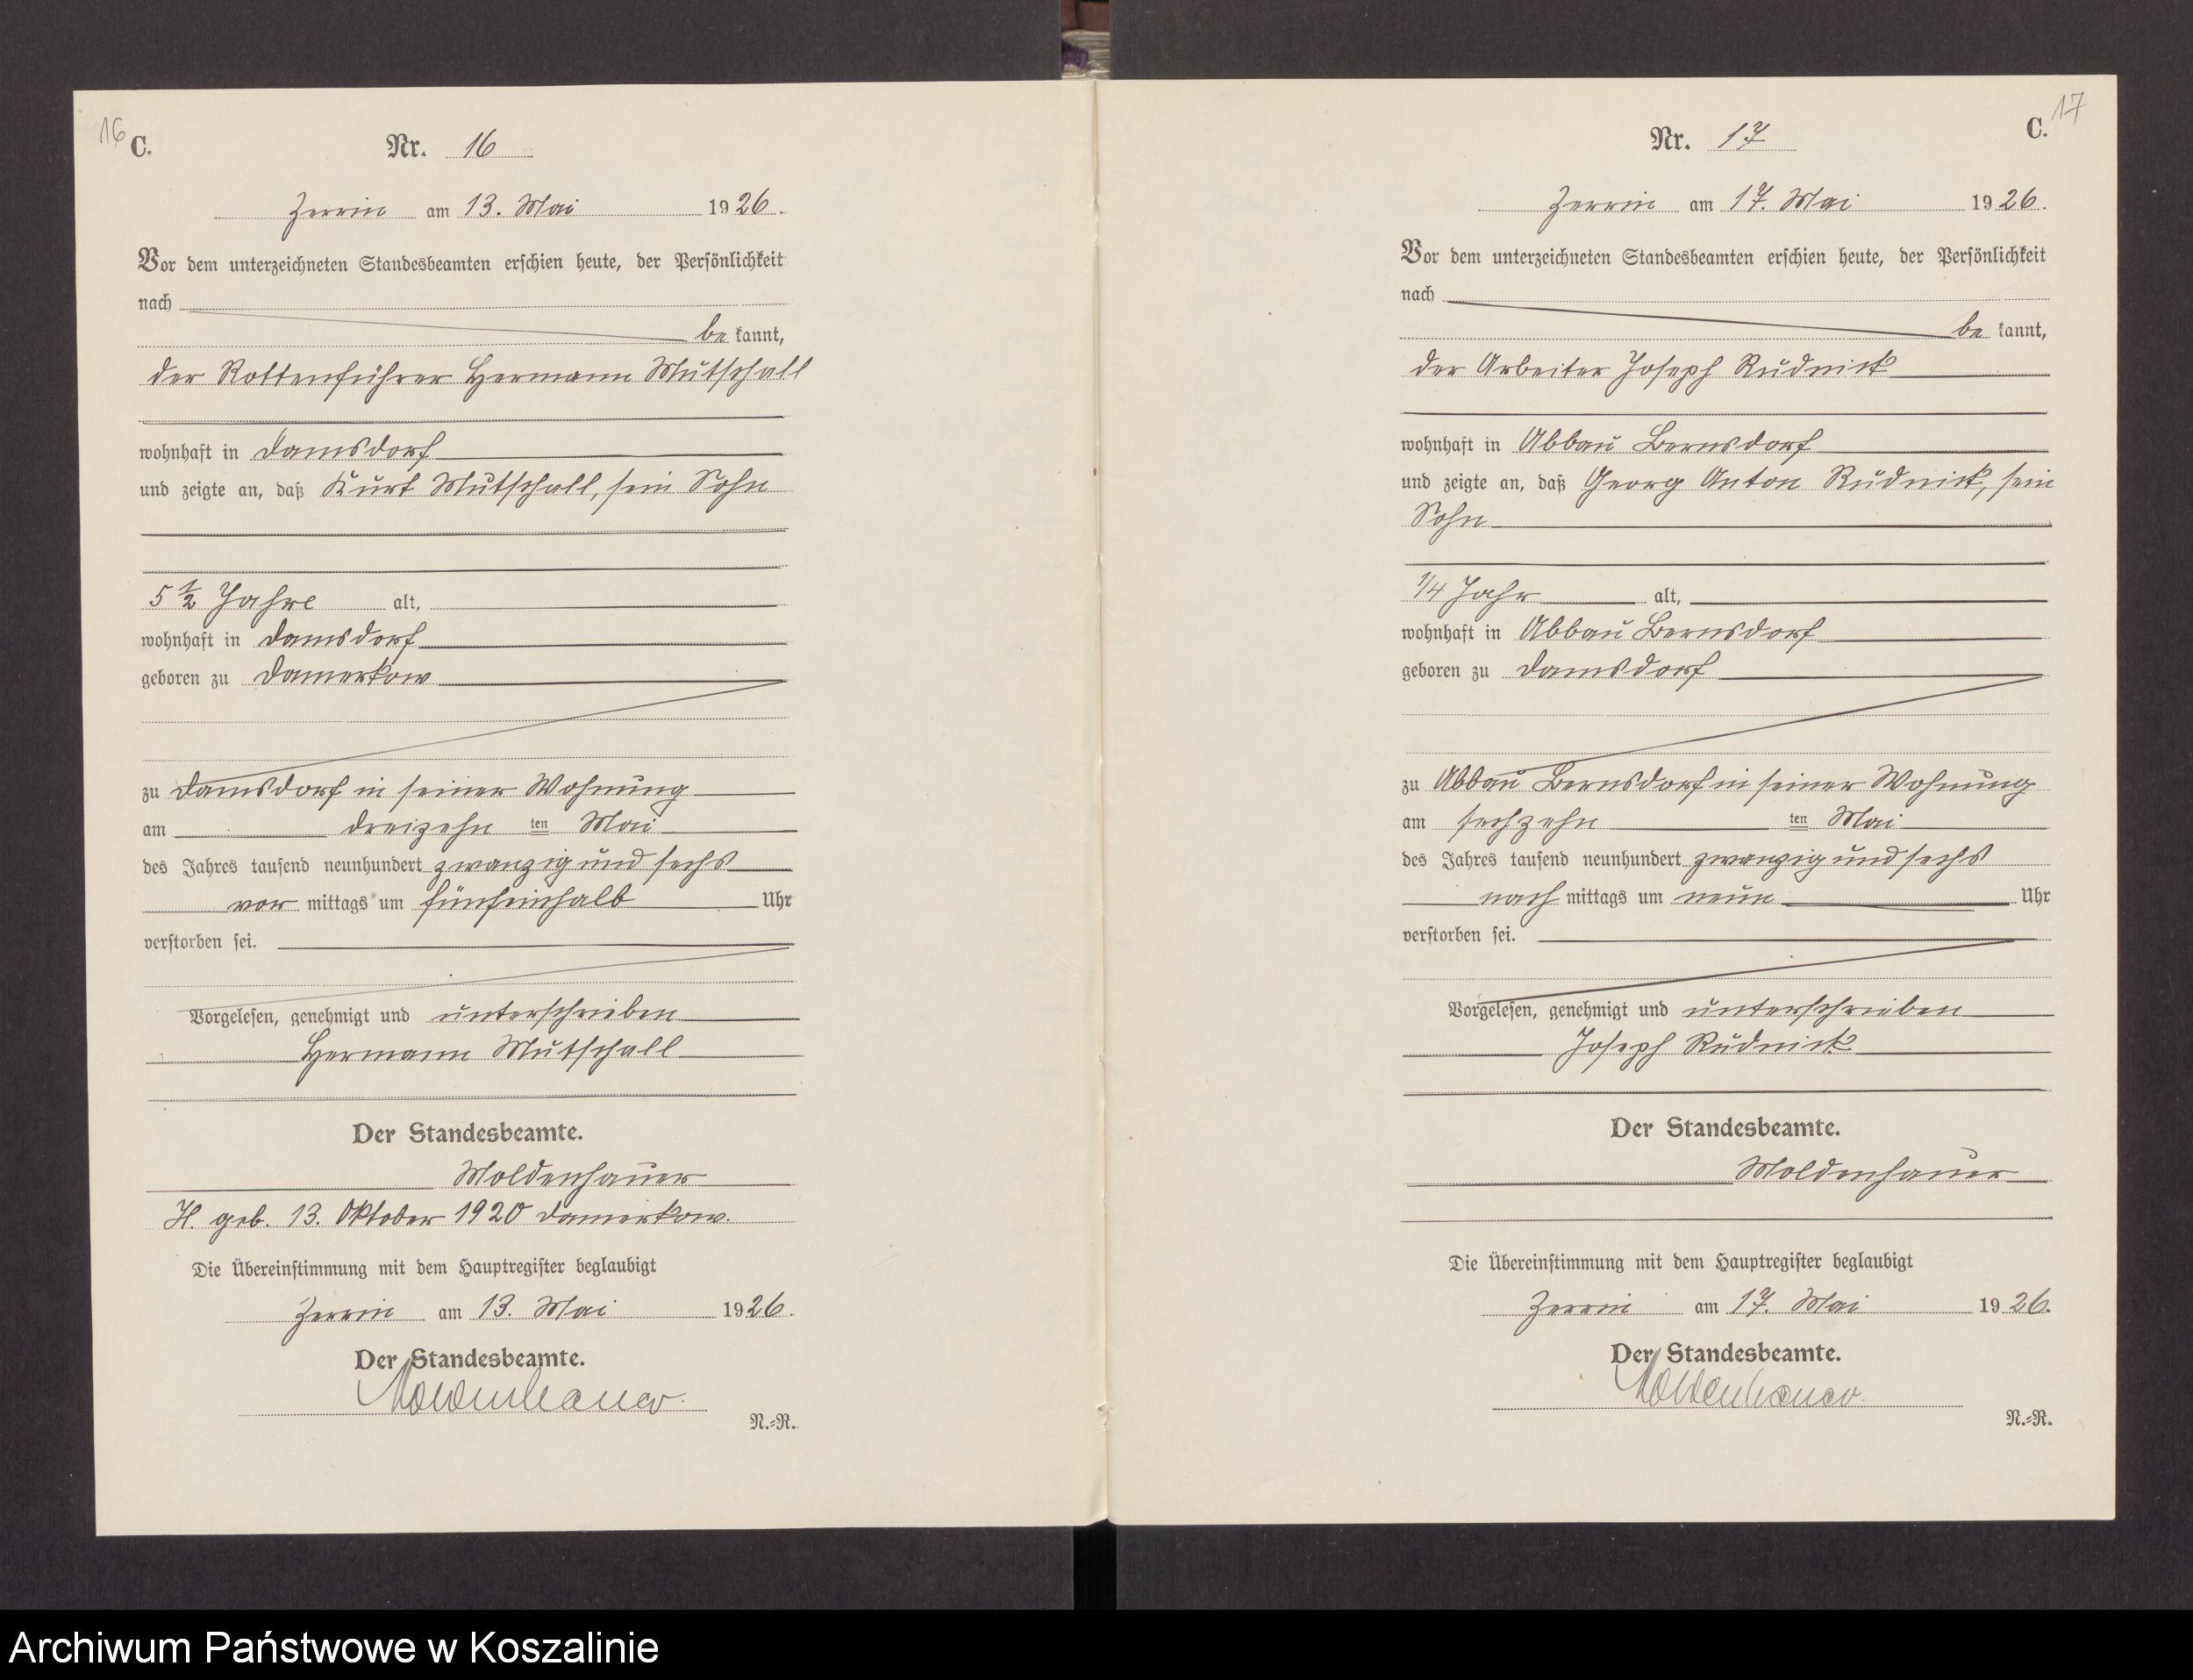 16
C.
Nr. 16
Zerrin am 13. Mai 1926.
Vor dem unterzeichneten Standesbeamten erschien heute, der Persönlichkeit
nach
be kannt,
der Rottenführer Hermann Mutschall
wohnhaft in Damsdorf
und zeigte an, daß Kurt Mutschall, sein Sohn
5 1/2 Jahre alt,
wohnhaft in Damsdorf
geboren zu Damerkow
zu Damsdorf in seiner Wohnung
am dreizehn ten Mai
des Jahres tausend neunhundert zwanzig und sechs
vor mittags um fünfeinhalb Uhr
verstorben sei.
Vorgelesen, genehmigt und unterschrieben
Hermann Mutschall
Der Standesbeamte.
Moldenhauer
H. geb. 13. Oktober 1920 Damerkow.
Die Übereinstimmung mit dem Hauptregister beglaubigt
Zerrin am 13. Mai 1926.
Der Standesbeamte.
Moldenhauer.
N.=R.
17
C.
Nr. 17
Zerrin am 17. Mai 1926.
Vor dem unterzeichneten Standesbeamten erschien heute, der Persönlichkeit
nach
be kannt,
der Arbeiter Joseph Rudnick
wohnhaft in Abbau Bernsdorf
und zeigte an, daß Georg Anton Rudnick, sein
Sohn
1/4 Jahr alt,
wohnhaft in Abbau Bernsdorf
geboren zu Damsdorf
zu Abbau Bernsdorf in seiner Wohnung
am sechzehn ten Mai
des Jahres tausend neunhundert zwanzig und sechs
nach mittags um neun Uhr
verstorben sei.
Vorgelesen, genehmigt und unterschrieben
Joseph Rudnick
Der Standesbeamte.
Moldenhauer
Die Übereinstimmung mit dem Hauptregister beglaubigt
Zerrin am 17. Mai 1926.
Der Standesbeamte.
Moldenhauer.
N.=R.
Archiwum Państwowe w Koszalinie